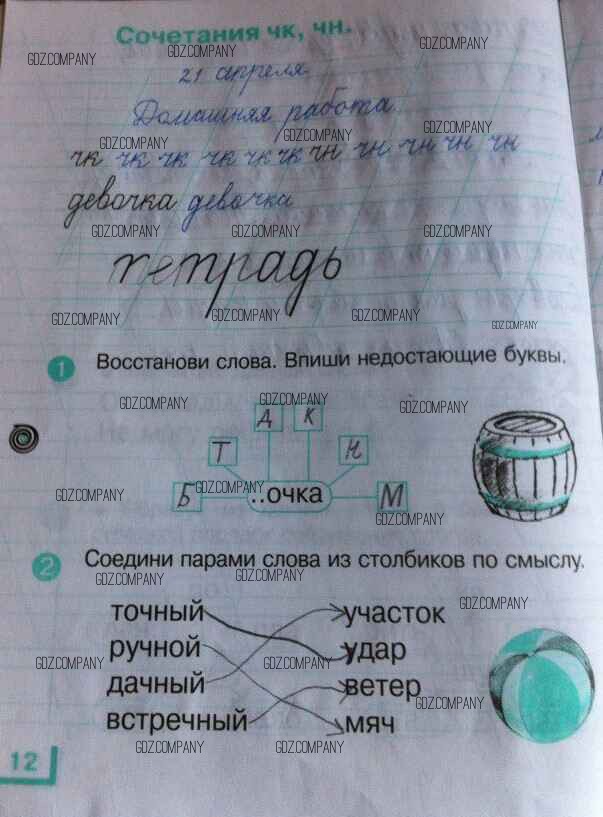 Сочетания чк, чн.
GDZ.COMPANY GDZ.COMPANY GDZ.COMPANY
21 апреля
Домашняя работа
GDZ.COMPANY GDZ.COMPANY GDZ.COMPANY
чк чк чк чк чк чк чн чн чн чн чн
девочка девочка
GDZ.COMPANY GDZ.COMPANY GDZ.COMPANY
тетрадь
GDZ.COMPANY GDZ.COMPANY GDZ.COMPANY GDZ.COMPANY
1 Восстанови слова. Впиши недостающие буквы.
GDZ.COMPANY GDZ.COMPANY GDZ.COMPANY
Д К
Т Н
GDZ.COMPANY GDZ.COMPANY
Б ..очка М
GDZ.COMPANY
2 Соедини парами слова из столбиков по смыслу.
GDZ.COMPANY GDZ.COMPANY GDZ.COMPANY
точный участок
ручной удар
GDZ.COMPANY GDZ.COMPANY
дачный ветер
GDZ.COMPANY
встречный мяч
GDZ.COMPANY GDZ.COMPANY
12